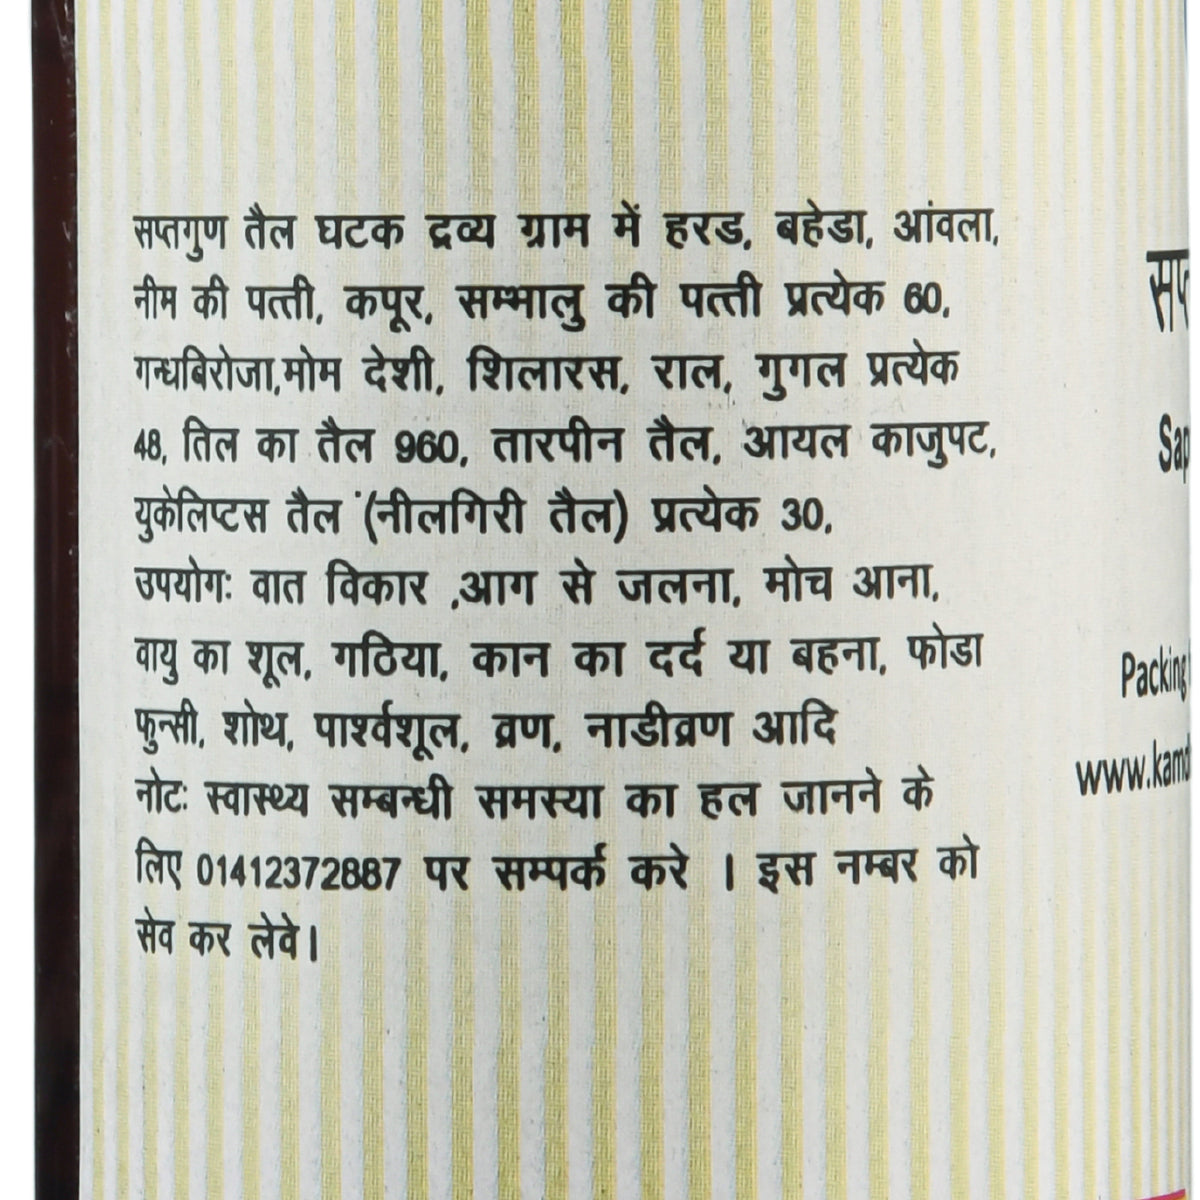 सप्तगुण तैल घटक द्रव्य ग्राम में हरड, बहेडा, आंवला,
नीम की पत्ती, कपूर, सम्भालु की पत्ती प्रत्येक 60,
गन्धबिरोजा,मोम देशी, शिलारस, राल, गुगल प्रत्येक
48, तिल का तैल 960, तारपीन तैल, आयल काजुपट,
युकेलिप्टस तैल (नीलगिरी तैल) प्रत्येक 30,
उपयोगः वात विकार ,आग से जलना, मोच आना,
वायु का शूल, गठिया, कान का दर्द या बहना, फोडा
फुन्सी, शोथ, पार्श्वशूल, व्रण, नाडीव्रण आदि
नोटः स्वास्थ्य सम्बन्धी समस्या का हल जानने के
लिए 01412372887 पर सम्पर्क करे । इस नम्बर को
सेव कर लेवे।
Packing